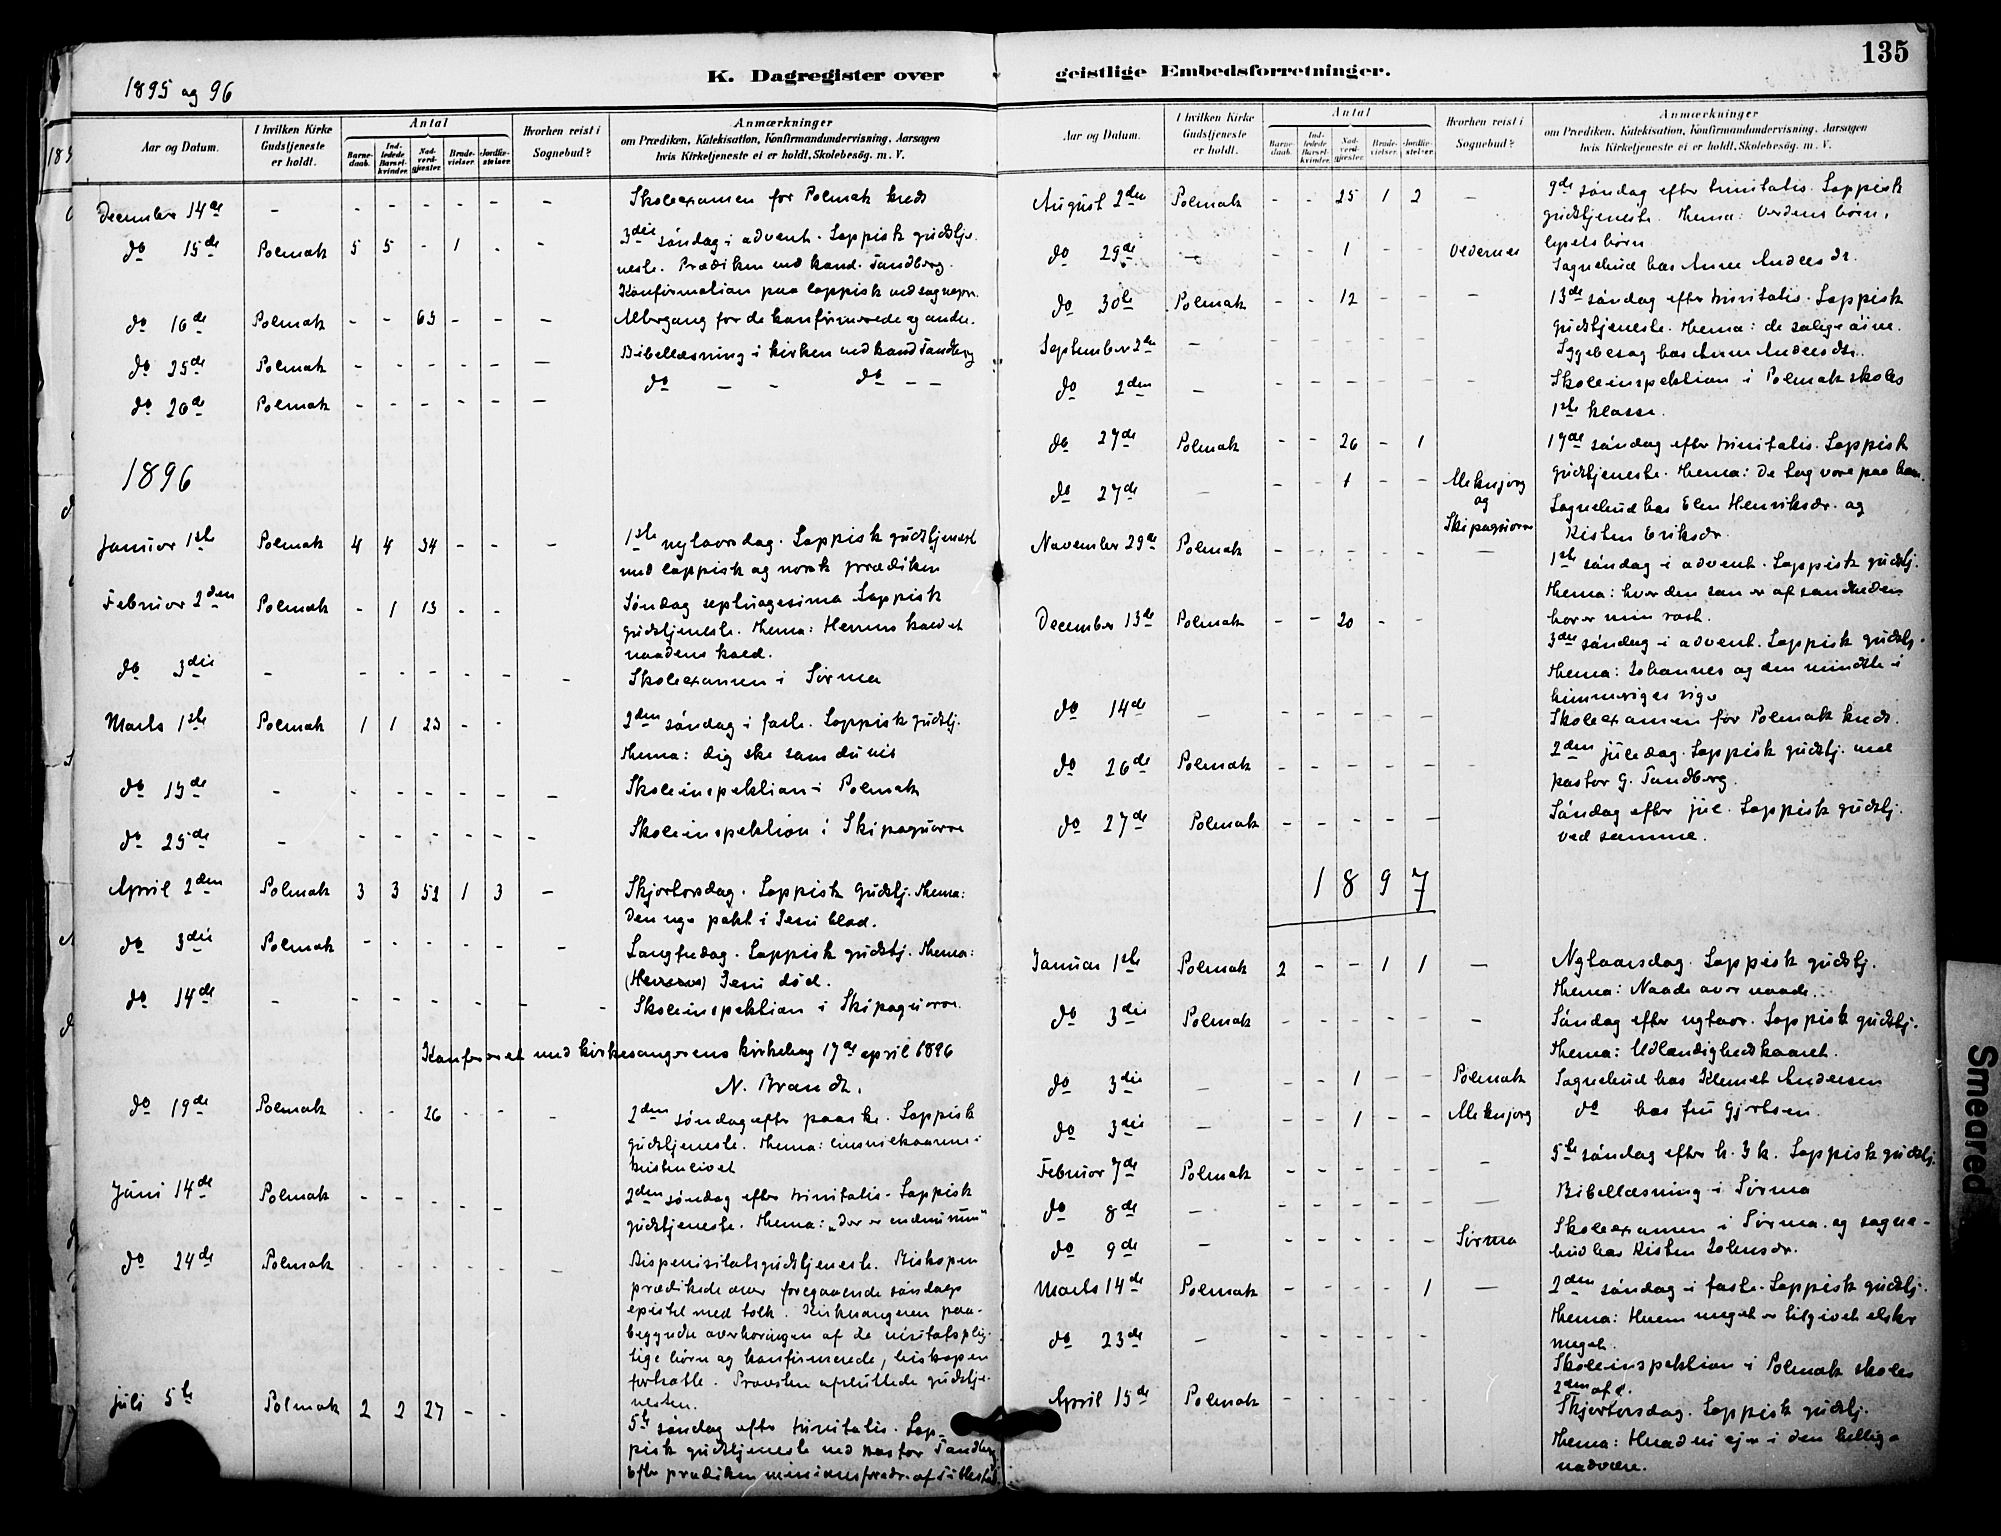 135
1895 og 96
K. Dagregister over geistlige Embedsforretninger.
Aar og Datum.
I hvilken Kirke Gudstjeneste er holdt.
Antal
Barnedaab.
Indledede Barselkvinder.
Nadverdgjester.
Brudevielser.
Jordfæstelser.
Hvorhen reist i Sognebud?
Anmærkninger
om Prædiken, Katekisation, Konfirmandundervisning, Aarsagen
hvis Kirketjeneste ei er holdt, Skolebesøg. m. V.
December 14de - - - - - - - Skoleexamen for Polmak kreds
do 15de Polmak 5 5 - 1 - - 3die søndag i advent. Lappisk gudstje-
neste. Prædiken ved kand. Tandberg.
Konfirmation paa lappisk ved sognepr.
do 16de Polmak - - 63 - - - Altergang for de konfirmerede og andre.
do 25de Polmak - - - - - - Bibellæsning i kirken ved kand Tandberg
do 26de Polmak - - - - - - do - - do - -
1896
Januar 1ste Polmak 4 4 34 - - - 1ste nytaarsdag. Lappisk gudstjeneste
med lappisk og norsk prædiken
Februar 2den Polmak - 1 13 - - Søndag septuagesima Lappisk
gudstjeneste. Thema: Herrens kald et
naadens kald.
do 3die - - - - - - - Skoleexamen i Sirma
Marts 1ste Polmak 1 1 23 - - 2den søndag i faste. Lappisk gudstj.
Thema: dig ske som du vil
do 13de - - - - - - - Skoleinspektion i Polmak
do 25de - - - - - - - Skoleinspektion i Skipaguorra
April 2den Polmak 3 3 52 1 3 - Skjærtorsdag. Lappisk Gudstj. Thema:
Den nye pakt i Jesu blod.
do 3die Polmak - - - - - - Langfredag. Lappisk gudstj. Thema:
(Herrens) Jesu død.
do 14de - - - - - - - Skoleinspektion i Skipaguorra.
Konfereret med kirkesangerens kirkebog 17de april 1896
N. Brandt.
do 19de Polmak - - 26 - - - 2den søndag efter paaske. Lappisk
gudstjeneste. Thema:
kristenlivet
Juni 14de Polmak - - - - - 2den søndag efter trinitatis. Lappisk
gudstjeneste. Thema: „Der er endnu rum"
do 24de Polmak - - - - - - Bispevisitatsgudstjeneste. Biskopen
prædikede over foregaaende søndags
epistel med tolk. Kirkesangeren paa-
begyndte overhøringen af de visitatsplig-
tige børn og konfirmerede, biskopen
fortsatte. Provsten afsluttede gudstje-
nesten.
juli 5te Polmak 2 2 27 - - 5te søndag efter trinitatis. Lap-
pisk gudstjeneste ved pastor Tandberg
Efter prædiken missionsforedr. af
Aar og Datum.
I hvilken Kirke Gudstjeneste er holdt.
Antal
Barnedaab.
Indledede Barselkvinder.
Nadverdgjester.
Brudevielser.
Jordfæstelser.
Hvorhen reist i Sognebud?
Anmærkninger
om Prædiken, Katekisation, Konfirmandundervisning, Aarsagen
hvis Kirketjeneste ei er holdt, Skolebesøg. m. V.
August 2den Polmak - - 25 1 2 - 9de søndag efter trinitatis. Lappisk
gudstjeneste. Thema: Verdens børn,
lysets børn
do 29de - - - 1 - - Vedernes Sognebud hos Anne Andersdr.
do 30te Polmak - - 12 - - - 13de søndag efter trinitatis. Lappisk
gudstjeneste. Thema: de salige øine.
September 2den - - - - - - Sygebesøg hos Anne Andersdr.
do 2den - - - - - - - Skoleinspektion i Polmak skoles
1ste klasse.
do 27de Polmak - - 26 - 1 17de søndag efter trinitatis. Lappisk
gudstjeneste. Thema: De tog vare paa ham.
do 27de - - - 1 - - Aleknjarg
og
Skipaguorra
Sognebud hos Elen Henriksdr. og
Kisten Eriksdr.
November 29de Polmak - - - - - - 1ste søndag i advent. Lappisk gudstj.
Thema: hver den som er af sandheden
hører min røst.
December 13de Polmak - - 20 - - 3die søndag i advent. Lappisk gudstj.
Thema: Johannes og den mindste i
himmeriges rige
do 14de - - - - - - - Skoleexamen for Polmak kreds.
do 26de Polmak - - - - - - 2den juledag. Lappisk gudstj. ved
pastor G. Tandberg.
do 27de Polmak - - - - - Søndag efter jul. Lappisk gudstj.
ved samme.
1897
Januar 1ste Polmak 2 - - 1 1 - Nytaarsdag. Lappisk gudstj.
Thema: Naade over naade.
do 3die Polmak - - - - - - Søndag efter nytaar. Lappisk gudstj.
Thema: Udlændighedskaaret.
do 3die - - - 1 - - Polmak Sognebud hos Klemet Andersen
do 3die - - - 1 - - Aleknjarg do hos fru Gjertsen.
Februar 7de Polmak - - - - - - 5te søndag efter h. 3 k. Lappisk gudstj.
do 8de - - - - - - - Bibellæsning i Sirma
do 9de - - - - - - Sirma Skoleexamen i Sirma og sogne-
bud hos Kisten Johnsdr.
Marts 14de Polmak - - - - 1 - 2den søndag i faste. Lappisk gudstj.
Thema: Hvem meget er tilgivet elsker
meget.
do 23de - - - - - - Skoleinspektion i Polmak skoles
2den afd.
April 15de Polmak - - - - - Skjærtorsdag. Lappisk gudstj.
Thema: Hvad vi eje i den hellige
nadvere.
Smeared